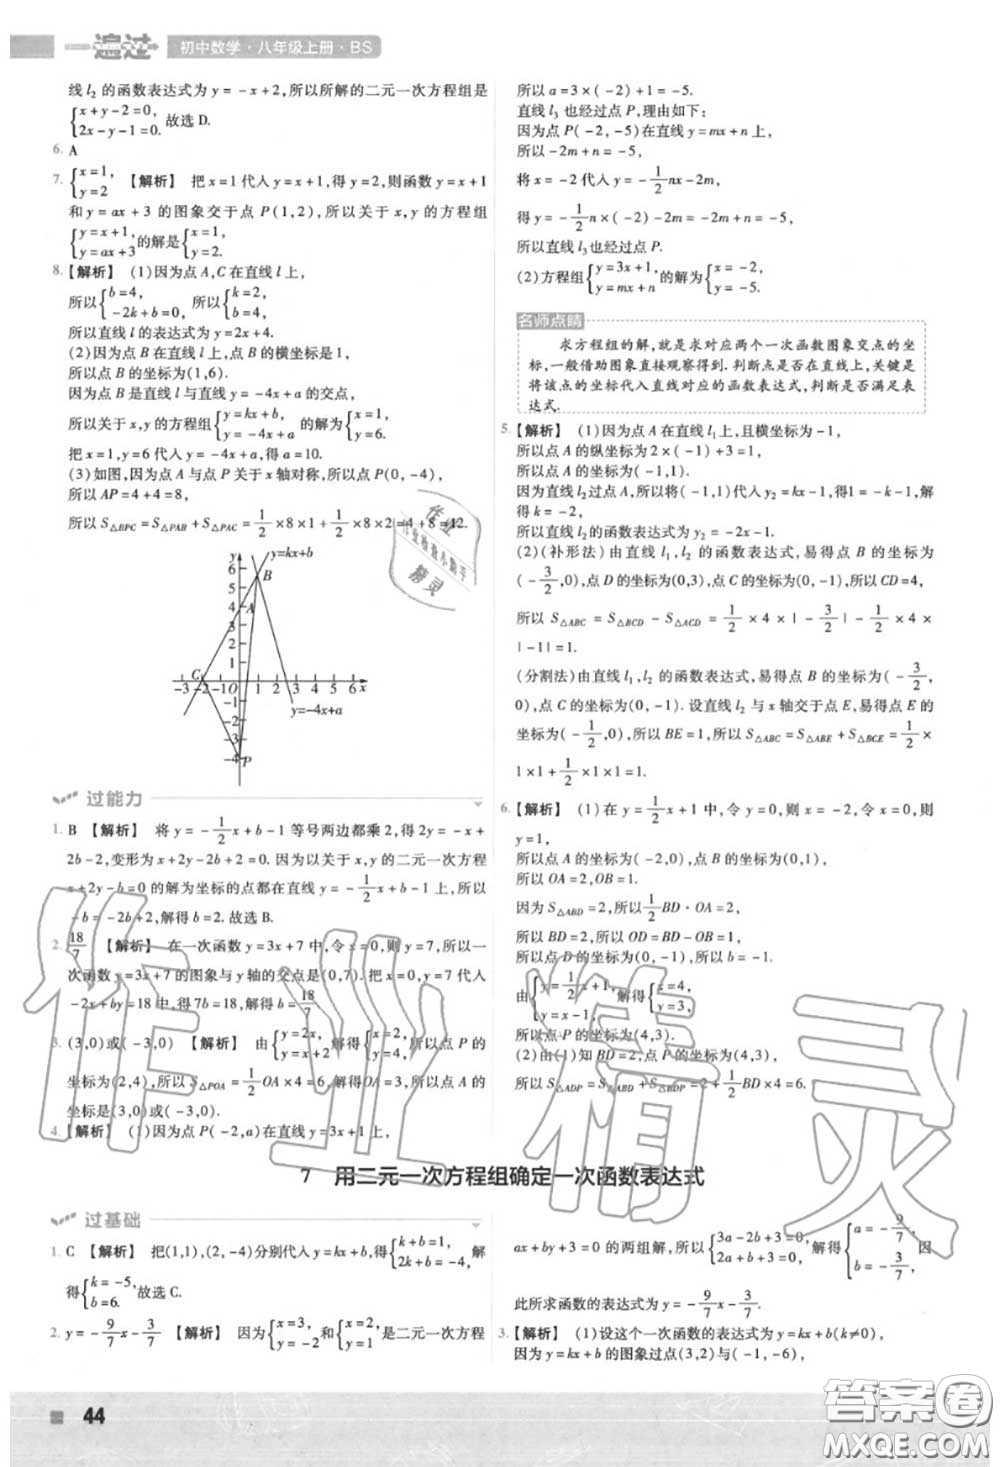 一遍过 初中数学·八年级上册·BS
线 l₂ 的函数表达式为 y = -x+2,所以所解的二元一次方程组是
{x+y-2=0, 2x-y-1=0. 故选 D.
6. A
7. {x=1, y=2 【解析】 把 x=1 代入 y=x+1,得 y=2,则函数 y=x+1
和 y=ax+3 的图象交于点 P(1,2),所以关于 x,y 的方程组
{y=x+1, y=ax+3 的解是 {x=1, y=2.
8. 【解析】 (1)因为点 A,C 在直线 l 上,
所以 {b=4, -2k+b=0, 所以 {k=2, b=4,
所以直线 l 的表达式为 y=2x+4.
(2)因为点 B 在直线 l 上,点 B 的横坐标为 1,
所以点 B 的坐标为(1,6).
因为点 B 是直线 l 与直线 y=-4x+a 的交点,
所以关于 x,y 的方程组 {y=kx+b, y=-4x+a 的解为 {x=1, y=6.
把 x=1,y=6 代入 y=-4x+a,得 a=10.
(3)如图,因为点 A 与点 P 关于 x 轴对称,所以点 P(0,-4),
所以 AP=4+4=8,
所以 S△BPC = S△PAB + S△PAC = 1/2×8×1+1/2×8×2=4+8=12.
y y=kx+b
6 5 4 3 2 1
B
A
C
-3 -2 -1 O 1 2 3 4 5 6 x
-1 -2 -3 -4
y=-4x+a
P
过能力
1. B 【解析】 将 y=-1/2x+b-1 等号两边都乘 2,得 2y=-x+
2b-2,变形为 x+2y-2b+2=0. 因为以关于 x,y 的二元一次方程
x+2y-b=0 的解为坐标的点都在直线 y=-1/2x+b-1 上,所以
-b=-2b+2,解得 b=2. 故选 B.
2. 18/7 【解析】 在一次函数 y=3x+7 中,令 x=0,则 y=7,所以一
次函数 y=3x+7 的图象与 y 轴的交点是(0,7). 把 x=0,y=7 代入
-2x+by=18 中,得 7b=18,解得 b=18/7.
3. (3,0)或(-3,0) 【解析】 由 {y=2x, y=x+2 解得 {x=2, y=4, 所以点 P 的
坐标为(2,4),所以 S△POA=1/2OA×4=6,解得 OA=3,所以点 A 的
坐标是(3,0)或(-3,0).
4. 【解析】 (1)因为点 P(-2,a)在直线 y=3x+1 上,
所以 a=3×(-2)+1=-5.
直线 l₃ 也经过点 P,理由如下:
因为点 P(-2,-5)在直线 y=mx+n 上,
所以-2m+n=-5,
将 x=-2 代入 y=-1/2nx-2m,
得 y=-1/2n×(-2)-2m=n-2m=-5,
所以直线 l₃ 也经过点 P.
(2)方程组 {y=3x+1, y=mx+n 的解为 {x=-2, y=-5.
名师点睛
求方程组的解,就是求对应两个一次函数图象交点的坐
标,一般借助图象直接观察得到.判断点是否在直线上,关键是
将该点的坐标代入直线对应的函数表达式,判断是否满足表
达式.
5. 【解析】 (1)因为点 A 在直线 l₁ 上,且横坐标为-1,
所以点 A 的纵坐标为 2×(-1)+3=1,
所以点 A 的坐标为(-1,1).
因为直线 l₂ 过点 A,所以将(-1,1)代入 y₂=kx-1,得 1=-k-1,解
得 k=-2,
所以直线 l₂ 的函数表达式为 y₂=-2x-1.
(2)(补形法)由直线 l₁,l₂ 的函数表达式,易得点 B 的坐标为
(-3/2,0),点 D 的坐标为(0,3),点 C 的坐标为(0,-1),所以 CD=4,
所以 S△ABC = S△BCD - S△ACD = 1/2×4×|-3/2|-1/2×4×
|-1|=1.
(分割法)由直线 l₁,l₂ 的函数表达式,易得点 B 的坐标为(-3/2,
0),点 C 的坐标为(0,-1). 设直线 l₂ 与 x 轴交于点 E,易得点 E 的
坐标为(-1/2,0),所以 BE=1,所以 S△ABC = S△ABE + S△BCE = 1/2×
1×1+1/2×1×1=1.
6. 【解析】 (1)在 y=1/2x+1 中,令 y=0,则 x=-2,令 x=0,则
y=1,
所以点 A 的坐标为(-2,0),点 B 的坐标为(0,1),
所以 OA=2,OB=1.
因为 S△ABD=2,所以 1/2BD·OA=2,
所以 BD=2,所以 OD=BD-OB=1,
所以点 D 的坐标为(0,-1),
由 {y=1/2x+1, y=x-1, 解得 {x=4, y=3,
所以点 P 的坐标为(4,3).
(2)由(1)知 BD=2,点 P 的坐标为(4,3),
所以 S△ADP = S△ABD + S△BDP = 2+1/2×2×4=6.
7 用二元一次方程组确定一次函数表达式
过基础
1. C 【解析】 把(1,1),(2,-4)分别代入 y=kx+b,得 {k+b=1, 2k+b=-4, 解
得 {k=-5, b=6. 故选 C.
2. y=-9/7x-3/7 【解析】 因为 {x=3, y=-2 和 {x=2, y=1 是二元一次方程
ax+by+3=0 的两组解,所以 {3a-2b+3=0, 2a+b+3=0, 解得 {a=-9/7, b=-3/7, 因
此所求函数的表达式为 y=-9/7x-3/7.
3. 【解析】 (1)设这个一次函数的表达式为 y=kx+b(k≠0),
因为 y=kx+b 的图象过点(3,2)与(-1,-6),
44
作业精灵
作业
作业检查小助手
精灵
答案圈
MXQE.COM